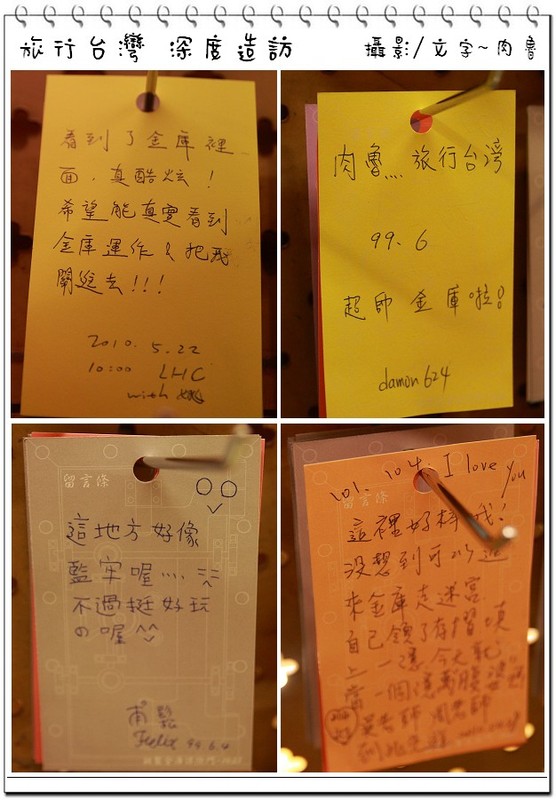 旅行台灣 深度造訪 攝影/文字~肉魯
看到了金庫裡
面，真酷炫！
希望能真實看到
金庫運作&把我
關進去!!!
2010. 5.22
10:00 LHC
with
肉魯灬 旅行台灣
99. 6
超帥金庫啦!
damon 624
留言條
這地方好像
監牢喔
不過挺好玩
の喔^^
Felix 99.6.
101. 104. I love you
留言條
這裡好棒我!
沒想到可以進
來金庫走迷宮
自己領了存摺
上一億，今天就
當一個億萬
老師 周老師